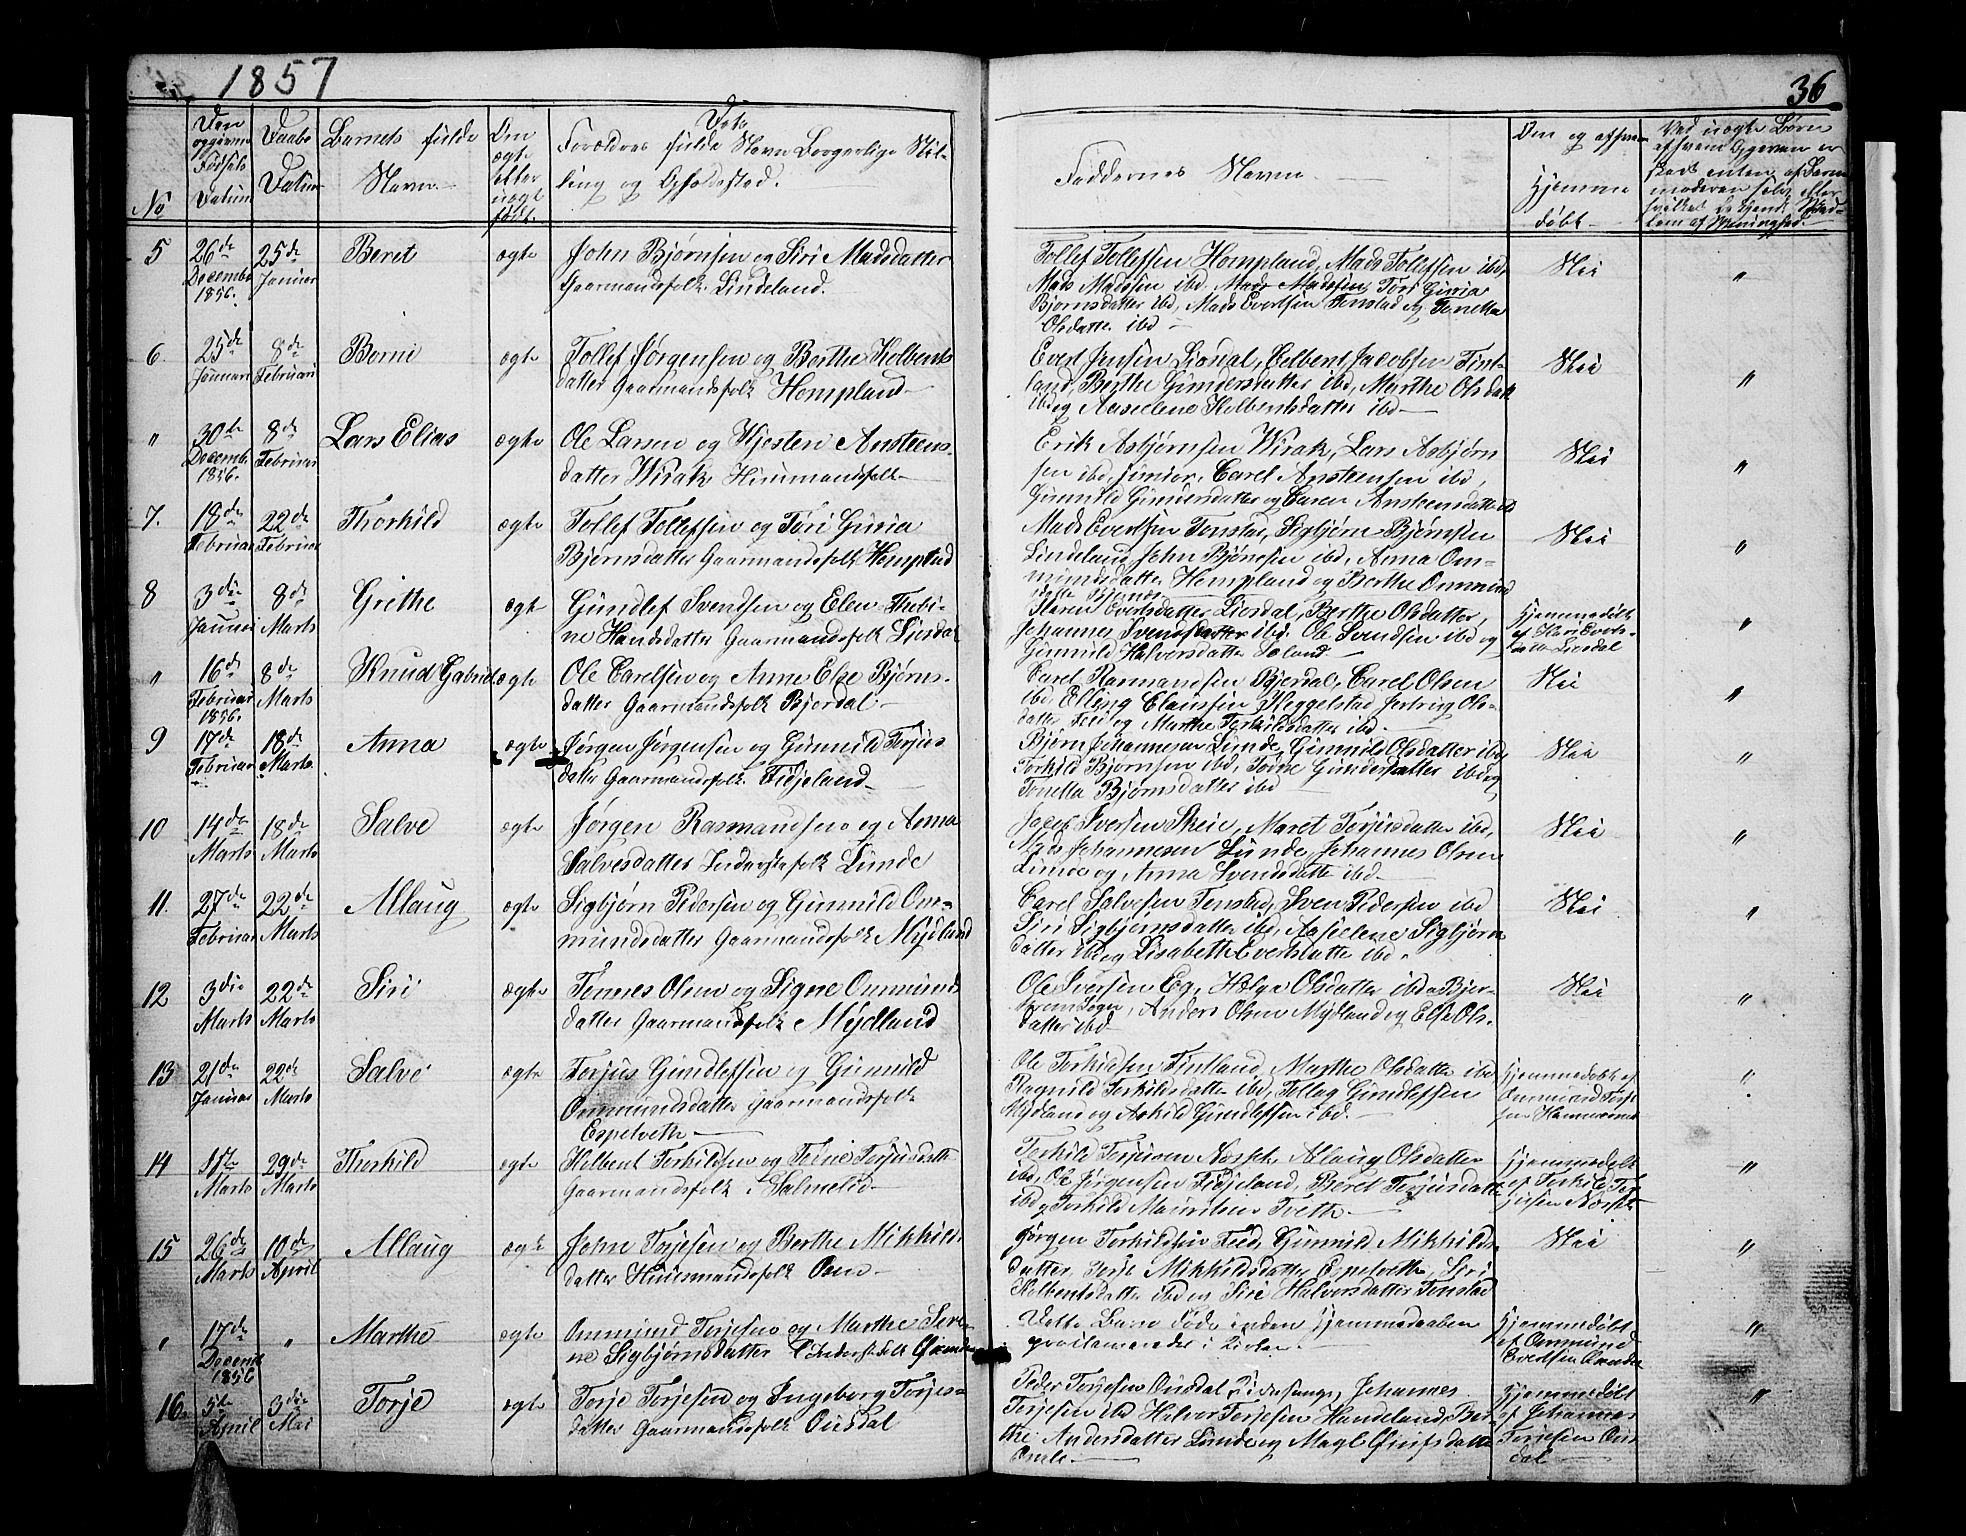 1857
36
No
Den opgivne Fødsels Datum
Daabs Datum
Barnets fulde Navn
Om ægte eller uægte født.
Forældres fulde Navn Borgerlige Stilling og Opholdssted.
Faddernes Navne
Om og af hvem hjemmedøbt
Ved uægte Børn
5 26de Decembe 1856. 25de Januar Beret ægte John Bjørnsen og Siri Madsdatter
Gaarmandsfolk Lindeland.
Tollef Tollefsen Hompland, Mads Tollefsen ibd,
Mads Madsen ibd, Tori Guria
Bjørnsdatter ibd, Mads Evertsen Tonstad og Tonetta
Olsdatter ibd
Nei "
6. 25de Januari 8de Februari Berni ægte Tollef Jørgensen og Berthe Kolbents
datter Gaarmandsfolk Hompland
Evert Jensen Liosdal, Jacobsen Tint-
land, Berthe Gundersdatter ibd, Marthe Olsdatt
ibd og Aasielene Kolbentsdatter ibd
Nei "
" 30te Decembe 1856. 8de Februar Lars Elias ægte Ole Larsen og Kjesten Ansteens-
datter Wirak Huusmandsfolk
Erik Asbjørnsen Wirak, Lars Asbjørn
sen ibd junior, Carel Ansteensen ibd,
Gunnild Gundersdatter og Caren Ansteensdatter ibd
Nei "
7. 18de Februar 22de Februar Thorkild ægte Tollef Tollefsen og Tori Guria
Bjørnsdatter Gaarmandsfolk Hompland
Mads Evertsen Tonstad, Sigbjørn Bjørnsen
Lindeland, John Bjørnsen ibd, Anna Om-
mundsdatter Hompland og Berthe Ommund
datter
Nei "
8 3die Januar 8de Marts Grethe ægte Gundlef Svendsen og Elen Thobi-
ne Hansdatter Gaarmandsfolk Liosdal
Karen Evertsdatter Liosdal, Berthe Olsdatter,
Johannes Svendsen ibd. Ole Svendsen ibd og
Gunnild Halversdatter
Hjemmedøbt
af Everts-
datter Liosdal "
" 16de Februar 1856. 8de Marts Knud Gabriel ægte Ole Carelsen og Anne Else Bjørns-
datter Gaarmandsfolk Bjordal
Carel Rasmundsen Bjordal, Carel Olsen
ibd, Elling Clausen Heggelstad, Ols-
datter og Marthe Torkildsdatter ibd
Nei "
9 17de Februar 18de Marts Anna ægte Jørgen Jørgensen og Gunnild Torjus
datter Gaarmandsfolk Fidjeland
Bjørn Johannesen Lunde, Gunnild Olsdatter ibd,
Torkild Bjørnsen ibd, Gundersdatter ibd og
Tonetta Bjørnsdatter ibd
Nei "
10 14de Marts 18de Marts Salve ægte Jørgen Rasmundsen og Anna
Salvesdatter Inderstefolk Lunde
Jacob Iversen Skeie, Maret Torjusdatter ibd,
Mads Johannesen Lunde, Johannes Olsen
Lunde og Anna Svendsdatter ibd.
Nei "
11. 27de Februar 22de Marts Allaug ægte Sigbjørn Pedersen og Gunnild Om-
mundsdatter Gaarmandsfolk Mydland
Carel Salvesen Tonstad, Sven Pedersen ibd
Siri Sigbjørnsdatter ibd, Aasielene Sigbjørn
datter ibd og Lisabeth Evertsdatter ibd.
Nei "
12 3die Marts 22de Marts Siri ægte Tønnes Olsen og Signe Ommunds
datter Gaarmandsfolk Mydland
Ole Iversen Eg, Helga Olsdatter ibd Bjer-
krem Sogn, Anders Olsen Mydland og Else Ols-
datter ibd
Nei "
13 21de Januar 22de Marts Salve ægte Torjus Gundlefsen og Gunnild
Ommundsdatter Gaarmandsfolk
Espelvethe
Ole Torkildsen Fintland, Marthe Olsdatter ibd
Ragnild Torkildsdatter ibd, Tellag Gundlefsen
Mydland og Askild Gundlefsen ibd.
Hjemmedøbt af
Ommund Torje
sen "
14 Marts 29de Marts Thorkild ægte Kolbent Torkildsen og Torjusdatt
Gaarmandsfolk i Salmelid
Torkild Torjusen Nørsek, Alaug Olsdatter
ibd, Ole Jørgensen Fidjeland, Beret Torjusdatter
ibd og Torkild Mauritsen Tveth
Hjemmedøbt
af Torkild Tor-
jusen "
15 26de Marts 10de April Allaug ægte John Torjesen og Berthe Mikkils-
datter Huusmandsfolk Osen
Jørgen Torkildsen Gunnild Mikkils-
datter, Mikkildsdatter Espelvethe, Siri
Kolbentsdatter ibd og Siri Halversdatter Tonstad
Nei "
" 17de Decemb 1856 " Marthe ægte Ommund Torjesen og Marthe Sere-
ne Sigbjørnsdatter Inderstefolk
Dette Barn døde inden Hjemmedaaben
proclameredes i Kirken.
Hjemmedøbt
af Ommund
Evertsen "
16. 5te April 3die Mai Torje ægte Torje Torjesen og Ingeborg Torjes-
datter Gaarmandsfolk Ousdal
Peder Torjesen Ousdal, Johannes
Torjesen ibd Halvor Torjesen Haudeland, Ber-
the Andersdatter Lunde og
Omle
Hjemmedøbt
af Johannes
Torjesen Ous
dal "